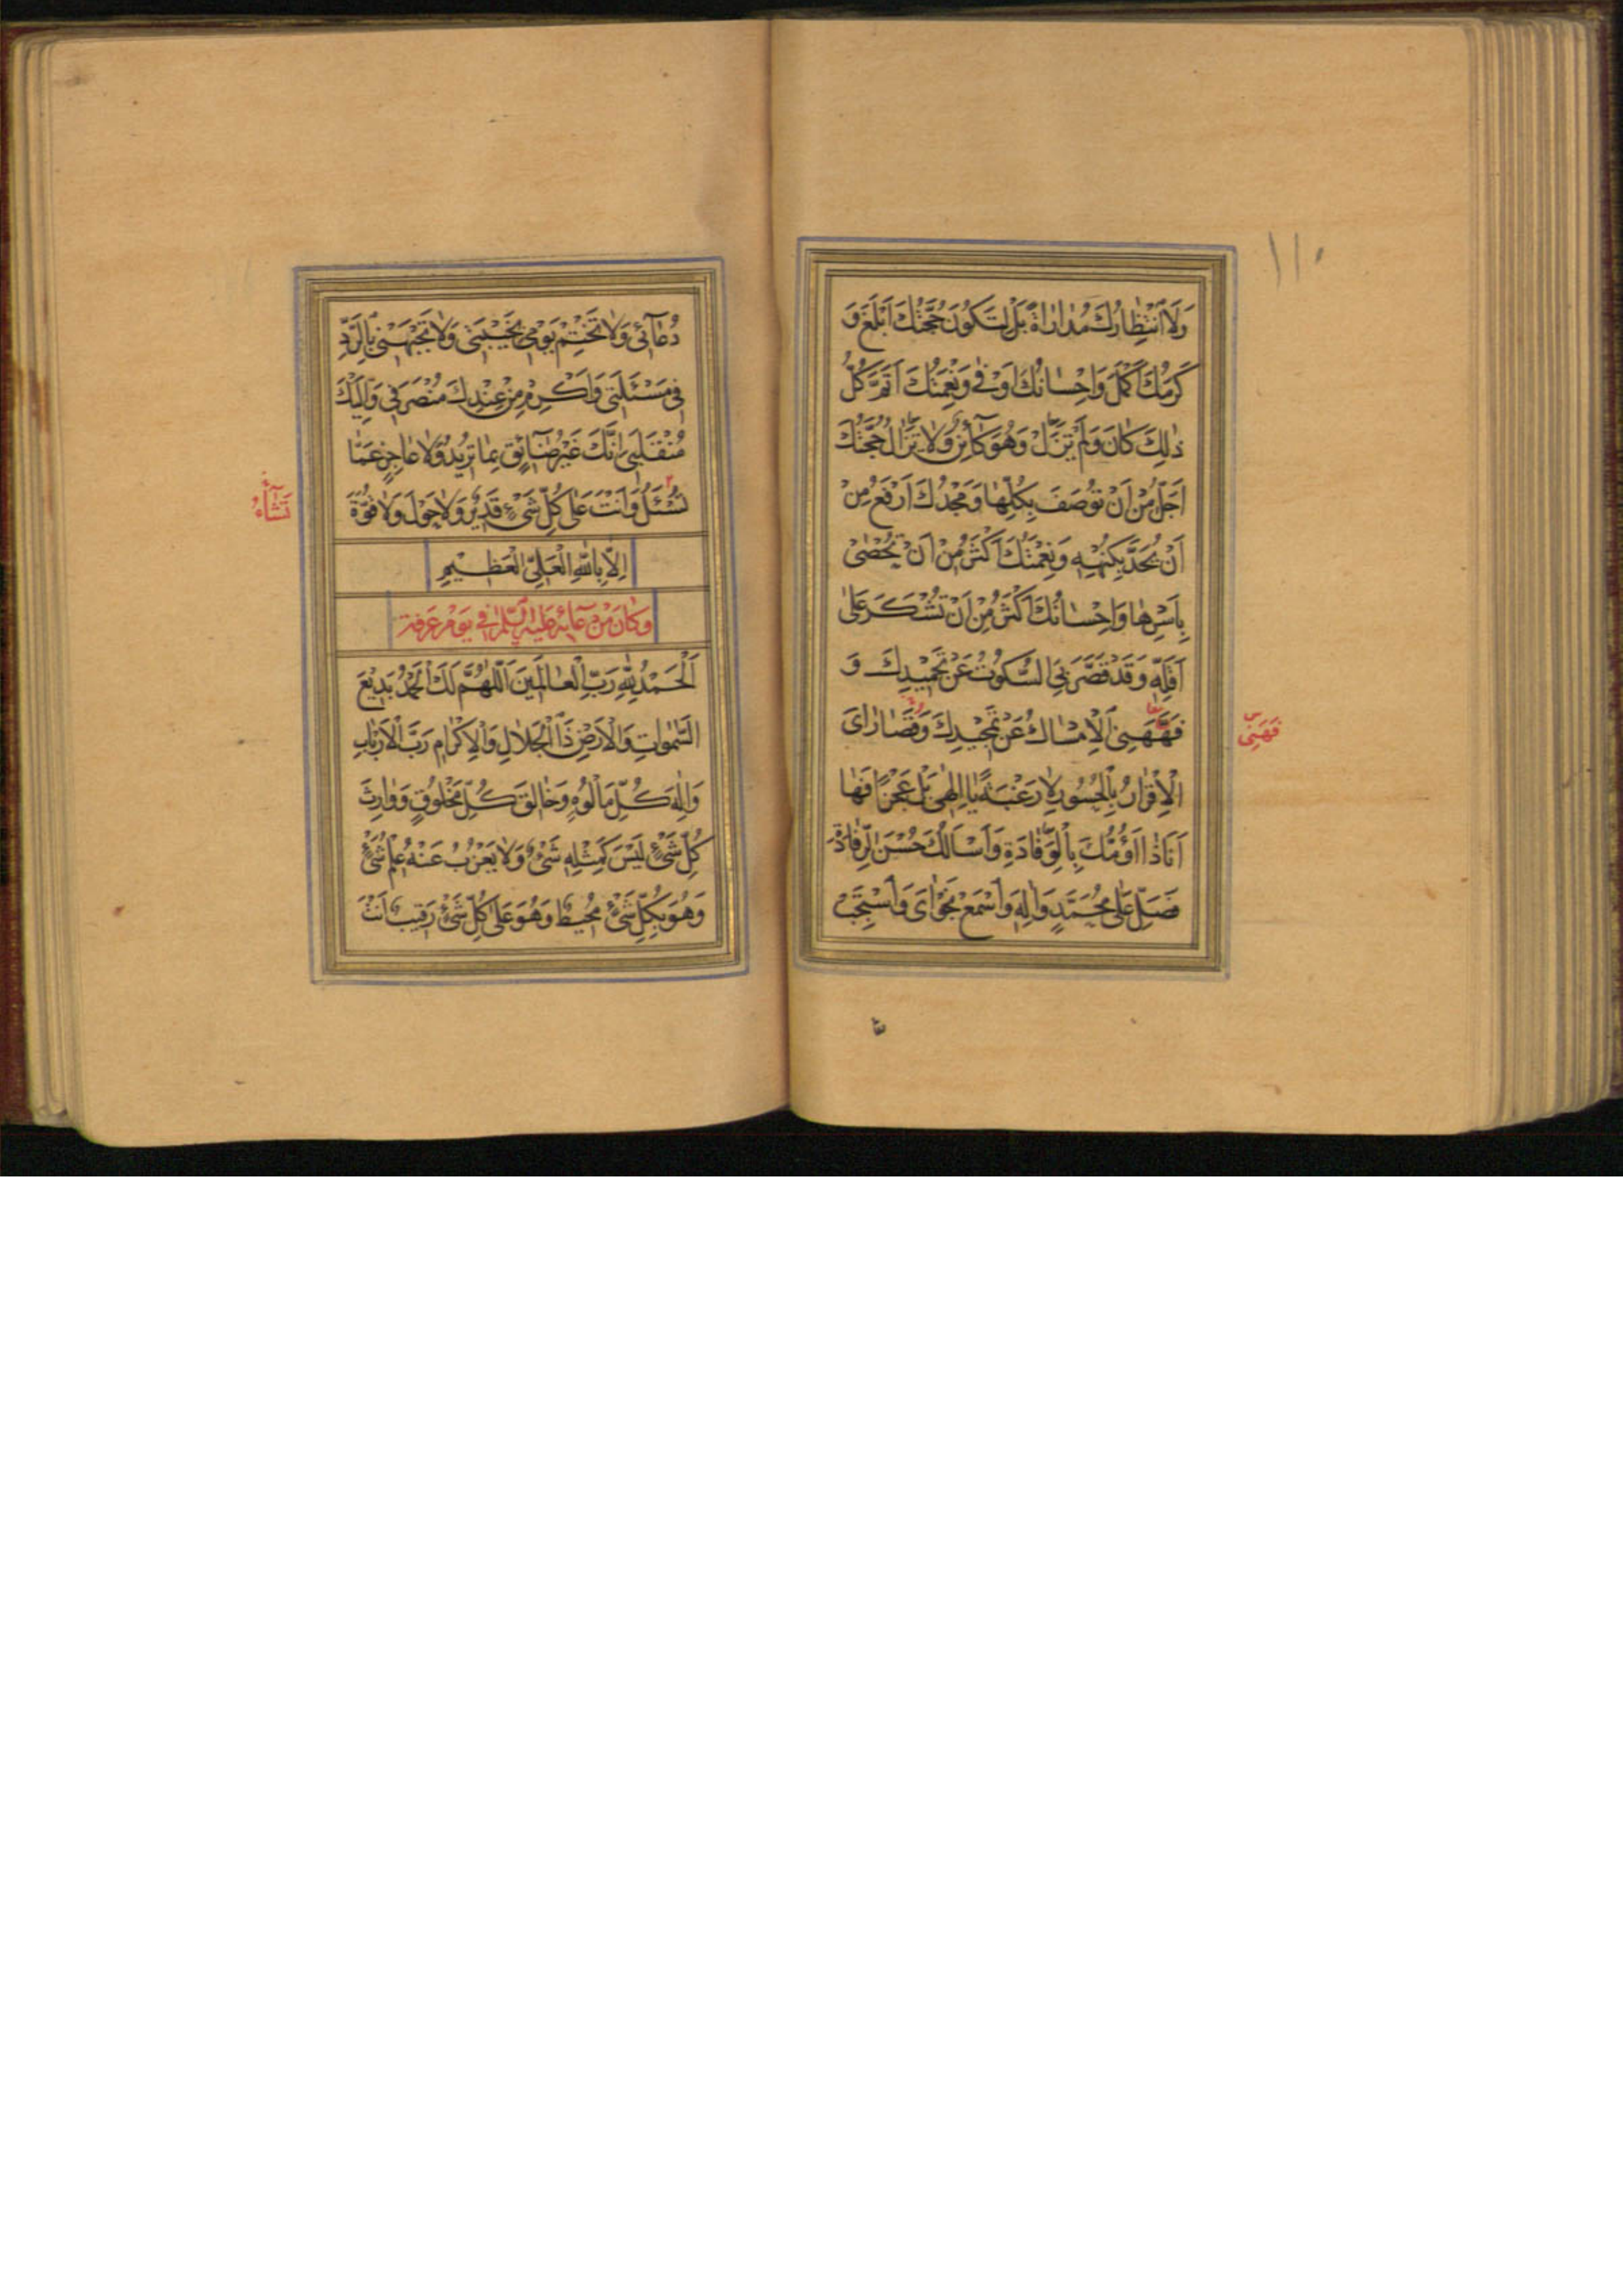 ١١٠
وَلَا انْتِظَارُكَ مُدَارَاةً بَلْ لِتَكُونَ حُجَّتُكَ اَبْلَغَ وَ
كَرَمُكَ اَكْمَلَ وَاِحْسَانُكَ اَوْفٰى وَنِعْمَتُكَ اَتَمَّ كُلُّ
ذٰلِكَ كَانَ وَلَمْ تَزَلْ وَهُوَ كَائِنٌ وَلَا تَزَالُ حُجَّتُكَ
اَجَلُّ مِنْ اَنْ تُوصَفَ بِكُلِّهَا وَمَجْدُكَ اَرْفَعُ مِنْ
اَنْ يُحَدَّ بِكُنْهِهِ وَنِعْمَتُكَ اَكْثَرُ مِنْ اَنْ تُحْصٰى
بِاَسْرِهَا وَاِحْسَانُكَ اَكْثَرُ مِنْ اَنْ تُشْكَرَ عَلٰى
اَقَلِّهِ وَقَدْ قَصَّرَ بِيَ السُّكُوتُ عَنْ تَحْمِيدِكَ وَ
فَهَّهَنِيَ الْاِمْسَاكُ عَنْ تَمْجِيدِكَ وَقُصَارَايَ
فَهَّنِي
الْاِقْرَارُ بِالْحُسُورِ لَا رَغْبَةً يَا اِلٰهِي بَلْ عَجْزًا فَهَا
اَنَا ذَا اَؤُمُّكَ بِالْوِفَادَةِ وَاَسْاَلُكَ حُسْنَ الرِّفَادَةِ
فَصَلِّ عَلٰى مُحَمَّدٍ وَاٰلِهِ وَاسْمَعْ نَجْوَايَ وَاسْتَجِبْ
دُعَآئِي وَلَا تَخْتِمْ يَوْمِي بِخَيْبَتِي وَلَا تَجْبَهْنِي بِالرَّدِّ
فِي مَسْئَلَتِي وَاَكْرِمْ مِنْ عِنْدِكَ مُنْصَرَفِي وَاِلَيْكَ
مُنْقَلَبِي اِنَّكَ غَيْرُ ضَآئِقٍ بِمَا تُرِيدُ وَلَا عَاجِزٍ عَمَّا
تُسْئَلُ وَاَنْتَ عَلٰى كُلِّ شَيْءٍ قَدِيرٌ وَلَا حَوْلَ وَلَا قُوَّةَ
تَشَآءُ
اِلَّا بِاللّٰهِ الْعَلِيِّ الْعَظِيمِ
وَكَانَ مِنْ دُعَآئِهِ عَلَيْهِ السَّلَامُ فِي يَوْمِ عَرَفَةَ
اَلْحَمْدُ لِلّٰهِ رَبِّ الْعَالَمِينَ اَللّٰهُمَّ لَكَ الْحَمْدُ بَدِيعَ
السَّمٰوَاتِ وَالْاَرْضِ ذَا الْجَلَالِ وَالْاِكْرَامِ رَبَّ الْاَرْبَابِ
وَاِلٰهَ كُلِّ مَاْلُوهٍ وَخَالِقَ كُلِّ مَخْلُوقٍ وَوَارِثَ
كُلِّ شَيْءٍ لَيْسَ كَمِثْلِهِ شَيْءٌ وَلَا يَعْزُبُ عَنْهُ عِلْمُ شَيْءٍ
وَهُوَ بِكُلِّ شَيْءٍ مُحِيطٌ وَهُوَ عَلٰى كُلِّ شَيْءٍ رَقِيبٌ اَنْتَ